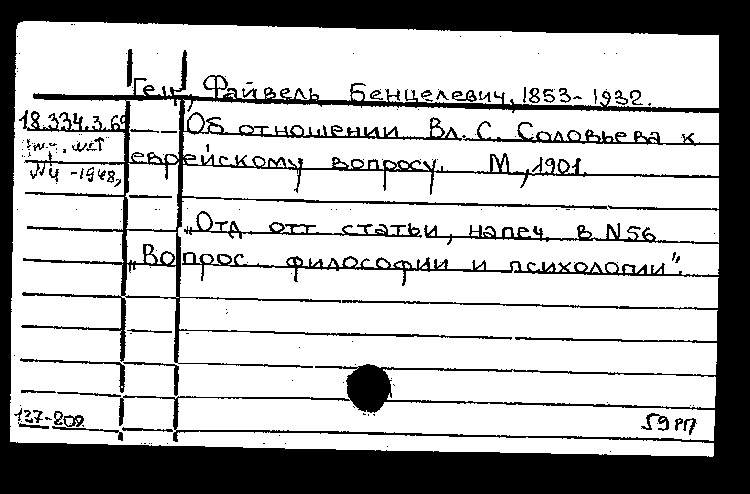 Гец, Файвель Бенцелевич, 1853-1932.
18.334.3.69
Об отношении Вл. С. Соловьева к
еврейскому вопросу. М, 1901.
N4 -1948,
"Отд. отт статьи, напеч. в N56
"Вопрос. философии и психологии".
137-202
59 РП